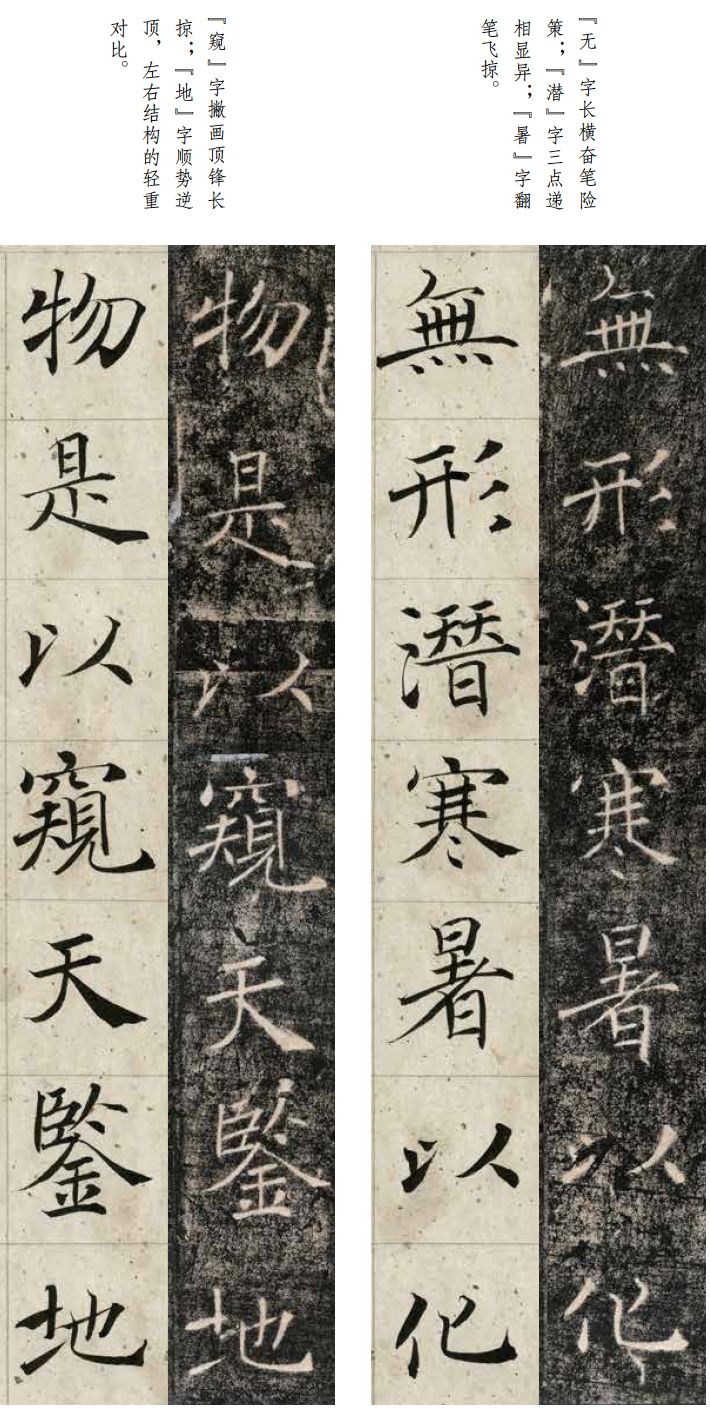 『无』字长横奋笔险
策；『潜』字三点递
相显异；『暑』字翻
笔飞掠。
無形潛寒暑以化
無形潛寒暑以化
『窥』字撇画顶锋长
掠；『地』字顺势逆
顶，左右结构的轻重
对比。
物是以窺天鑒地
物是以窺天鑒地